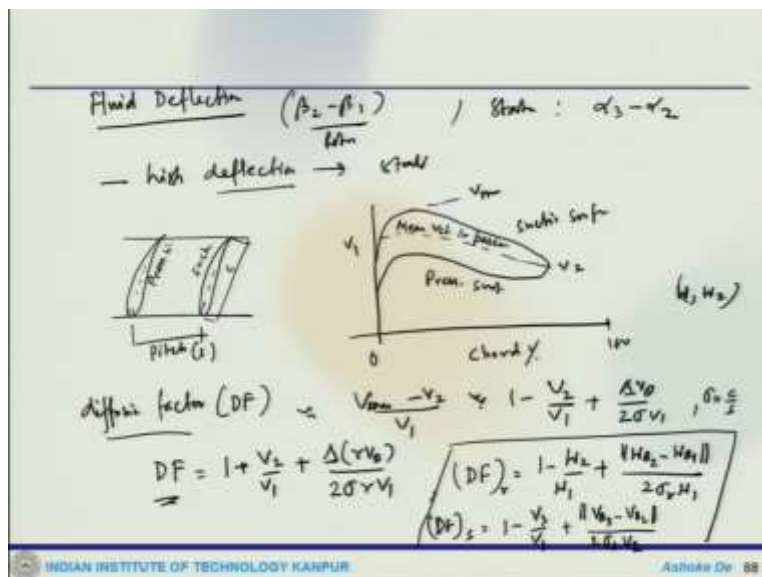 Fluid Deflection (β₂-β₁) / Stator : α₃-α₂
Rotor
— high deflection → stall
V₁
Suction surf
Mean vel in passage
V₂
Press. surf
Pitch (s)
0 Chord % 100
diffusion factor (DF) ~ Vmax - V₂ / V₁ ~ 1 - V₂/V₁ + ΔVθ/2σV₁ , σ = c/s
DF = 1 + V₂/V₁ + Δ(rVθ)/2σrV₁
(DF)r = 1 - W₂/W₁ + ||Wθ₂ - Wθ₁||/2σrW₁
(DF)s = 1 - V₃/V₂ + ||Vθ₃ - Vθ₂||/2σsV₂
INDIAN INSTITUTE OF TECHNOLOGY KANPUR Ashoke De 88